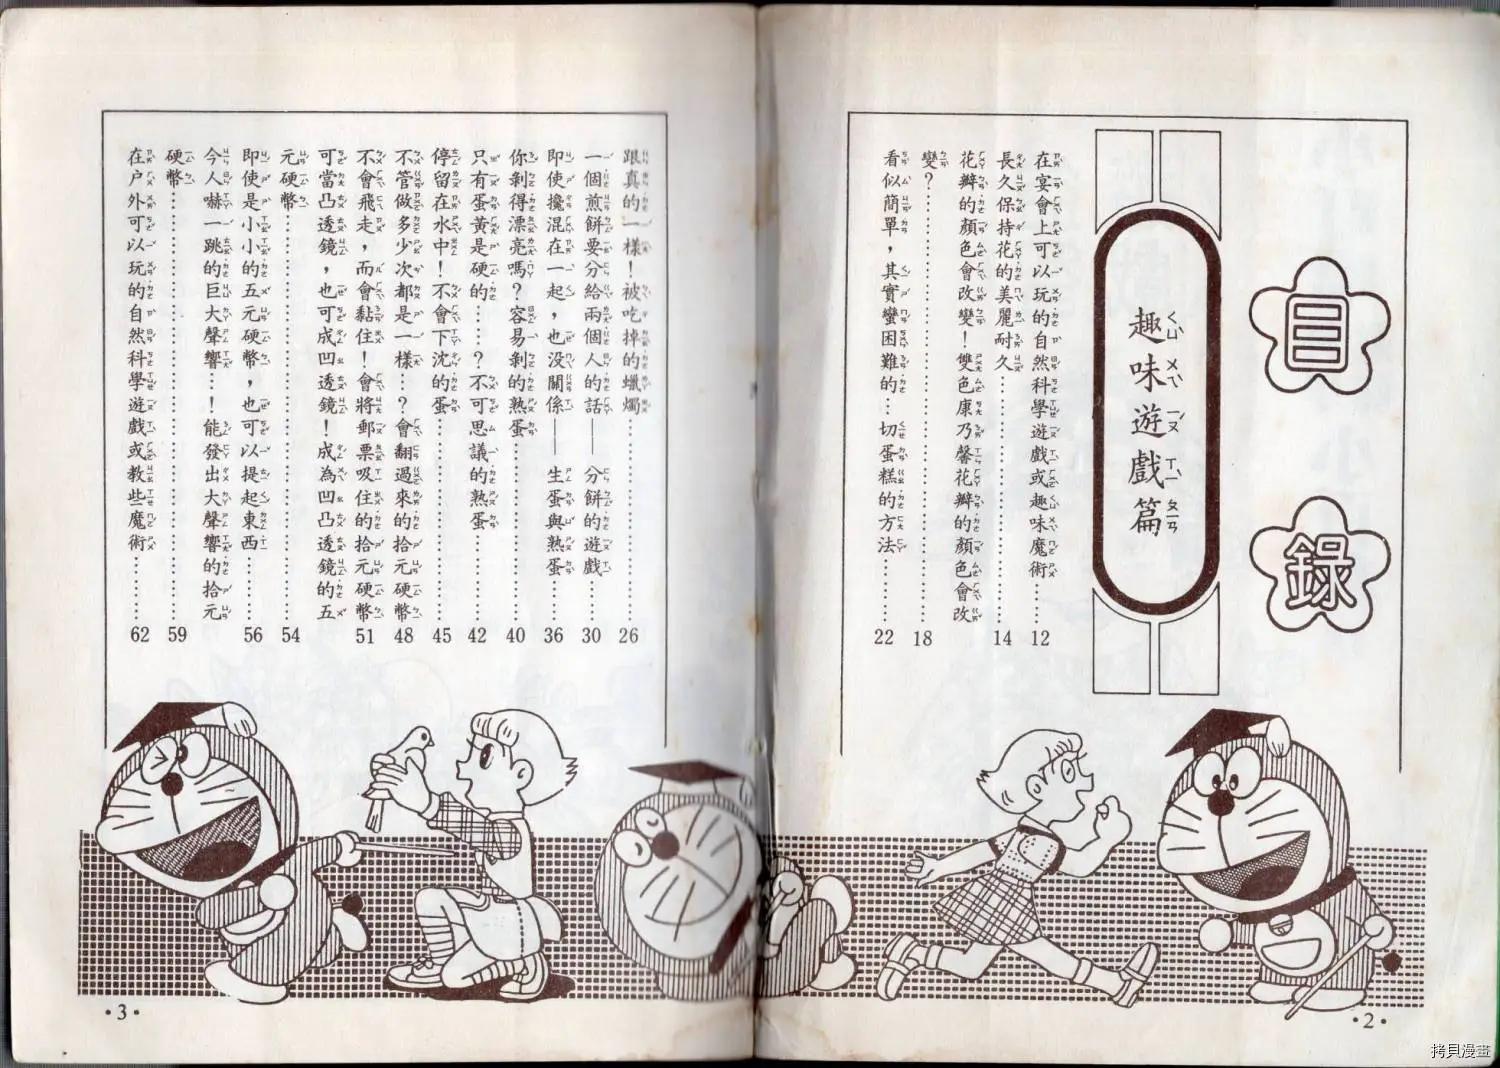 目錄
趣味遊戲篇
在宴會上可以玩的自然科學遊戲或趣味魔術……12
長久保持花的美麗耐久……14
花瓣的顏色會改變！雙色康乃馨花瓣的顏色會改
變？……18
看似簡單，其實蠻困難的…切蛋糕的方法……22
•2•
跟真的一樣！被吃掉的蠟燭……26
一個煎餅要分給兩個人的話——分餅的遊戲……30
即使攙混在一起，也没關係——生蛋與熟蛋……36
你剝得漂亮嗎？容易剝的熟蛋……40
只有蛋黃是硬的……？不可思議的熟蛋……42
停留在水中！不會下沈的蛋……45
不管做多少次都是一樣…？會翻過來的拾元硬幣……48
不會飛走，而會黏住！會將郵票吸住的拾元硬幣……51
可當凸透鏡，也可成凹透鏡！成為凹凸透鏡的五
元硬幣……54
即使是小小的五元硬幣，也可以提起東西……56
今人嚇一跳的巨大聲響…！能發出大聲響的拾元
硬幣……59
在户外可以玩的自然科學遊戲或教些魔術……62
•3•
拷貝漫畫